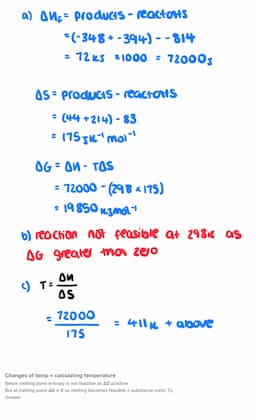 a) ΔHf = products - reactants
= (-348 + -394) - -814
= 72kJ ×1000 = 72000J
ΔS = products - reactants
= (44 + 214) - 83
= 175JK⁻¹mol⁻¹
ΔG = ΔH - TΔS
= 72000 - (298 × 175)
= 19850 KJmol⁻¹
b) reaction not feasible at 298K as
ΔG greater than zero
c) T = ΔH
ΔS
= 72000 = 411K + above
175
Changes of temp + calculating temperature
Below melting point entropy is not feasible as ΔG positive
But at melting point ΔG = 0 so melting becomes feasible + substance melts Ty
Greater